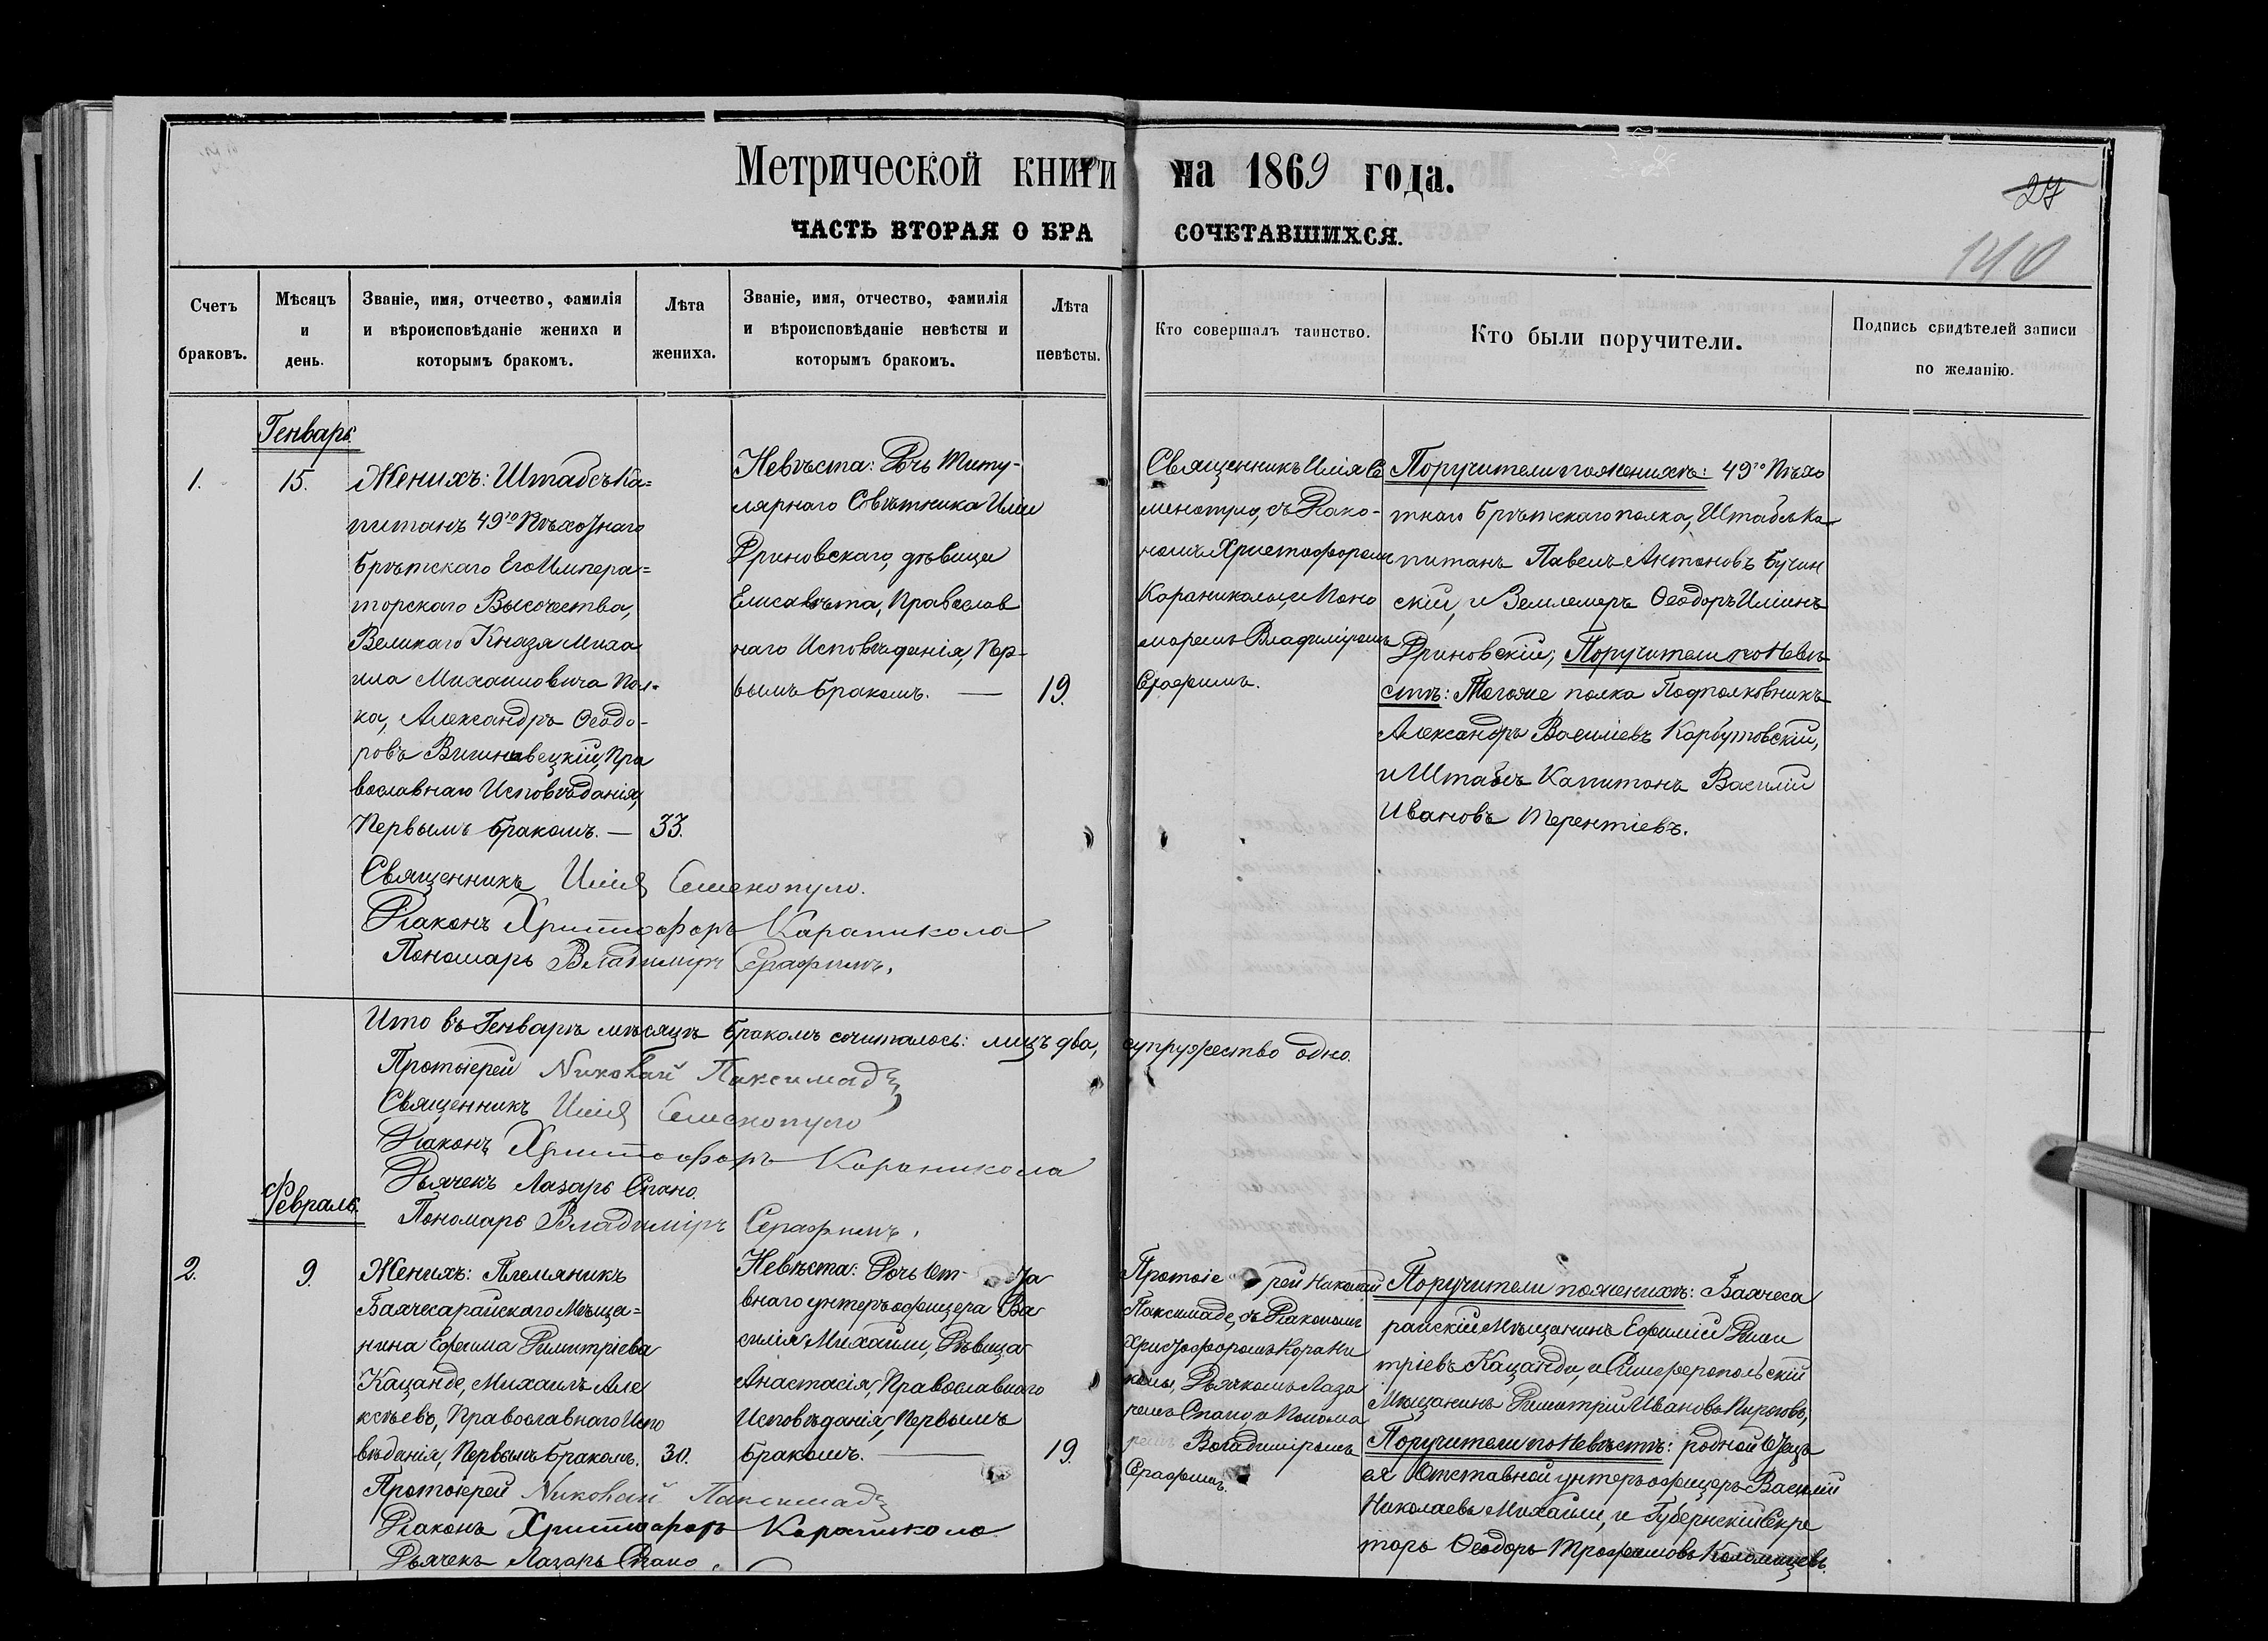 Метрической книги на 1869 года.
27
ЧАСТЬ ВТОРАЯ О БРА СОЧЕТАВШИХСЯ.
140
Счетъ браковъ.
Мѣсяцъ и день.
Званіе, имя, отчество, фамилія
и вѣроисповѣданіе жениха и
которымъ бракомъ.
Лѣта жениха.
Званіе, имя, отчество, фамилія
и вѣроисповѣданіе невѣсты и
которымъ бракомъ.
Лѣта невѣсты.
Кто совершалъ таинство.
Кто были поручители.
Подпись свидѣтелей записи
по желанію.
Генварь
1.
15.
Женихъ: Штабсъ Ка=
питанъ 49го Пѣхотнаго
Брѣтскаго Его Импера=
торскаго Высочества,
Великаго Князя Миха
ила Михаиловича Пол=
ка, Александръ Ѳеодо-
ровъ Вишнивецкій, Пра
вославнаго Исповѣданія,
Первымъ бракомъ. — 33.
Невѣста: Дочь Титу-
лярнаго Совѣтника Иліи
Дриновскаго, дѣвица
Елисавѣта, Православ
наго Исповѣданія, Пер-
вымъ бракомъ. — 19.
Священникъ Илія Се
менопуло, съ Діако-
номъ Христофоромъ
Караниколы, и Поно
моремъ Владиміромъ
Серафимъ.
Поручители по женихѣ: 49го Пѣхо
тнаго Брѣтскаго полка, Штабсъ Ка
питанъ Павелъ Антоновъ Бучин
скій, и Землемеръ Ѳеодоръ Иліинъ
Дриновскій; Поручители по Невѣ
стѣ: Тогоже полка Подполковникъ
Александръ Василіевъ Карбутовскій,
и Штабсъ Капитанъ Василій
Ивановъ Терентіевъ.
Священникъ Илія Семенопуло.
Діаконъ Христофоръ Караникола
Пономарь Владимиръ Серафимъ.
Итого въ Генварѣ мѣсяцѣ бракомъ сочиталось: лицъ два, супружество одно.
Протоіерей Николай Паксимадз
Священникъ Илія Семенопуло
Діаконъ Христофоръ Караникола
Дьячекъ Лазарь Спано.
Пономарь Владиміръ Серафимъ.
Февраль
2.
9.
Женихъ: Племяникъ
Бахчесарайскаго Мѣща=
нина Ефима Димитріева
Кацанде, Михаилъ Але
ксѣевъ, Православнаго Испо
вѣданія, Первымъ бракомъ. 30.
Невѣста: Дочь От- та
внаго унтеръ офицера Ва
силія Михаили, Дѣвица
Анастасія, Православнаго
Исповѣданія, Первымъ
бракомъ. — 19.
Протоіе рей Николай
Паксимаде, съ Діакономъ
Христофоромъ Карани
колы, Дьячкомъ Лаза
ремъ Спано, и Понома
ремъ Владиміромъ
Серафимъ.
Поручители по женихѣ: Бахчеса
райскій Мѣщанинъ Ефимій Дими
тріевъ Кацанди, и Симферопольскій
Мѣщанинъ Димитрій Ивановъ Пироговъ,
Поручители по Невѣстѣ: родной Отецъ
ея Отставной унтеръ офицеръ Василій
Николаевъ Михаили, и Губернскій Секре
тарь Ѳеодоръ Трофимовъ Коломицевъ.
Протоіерей Николай Паксимадз
Діаконъ Христофоръ Караникола
Дьячекъ Лазарь Спано.